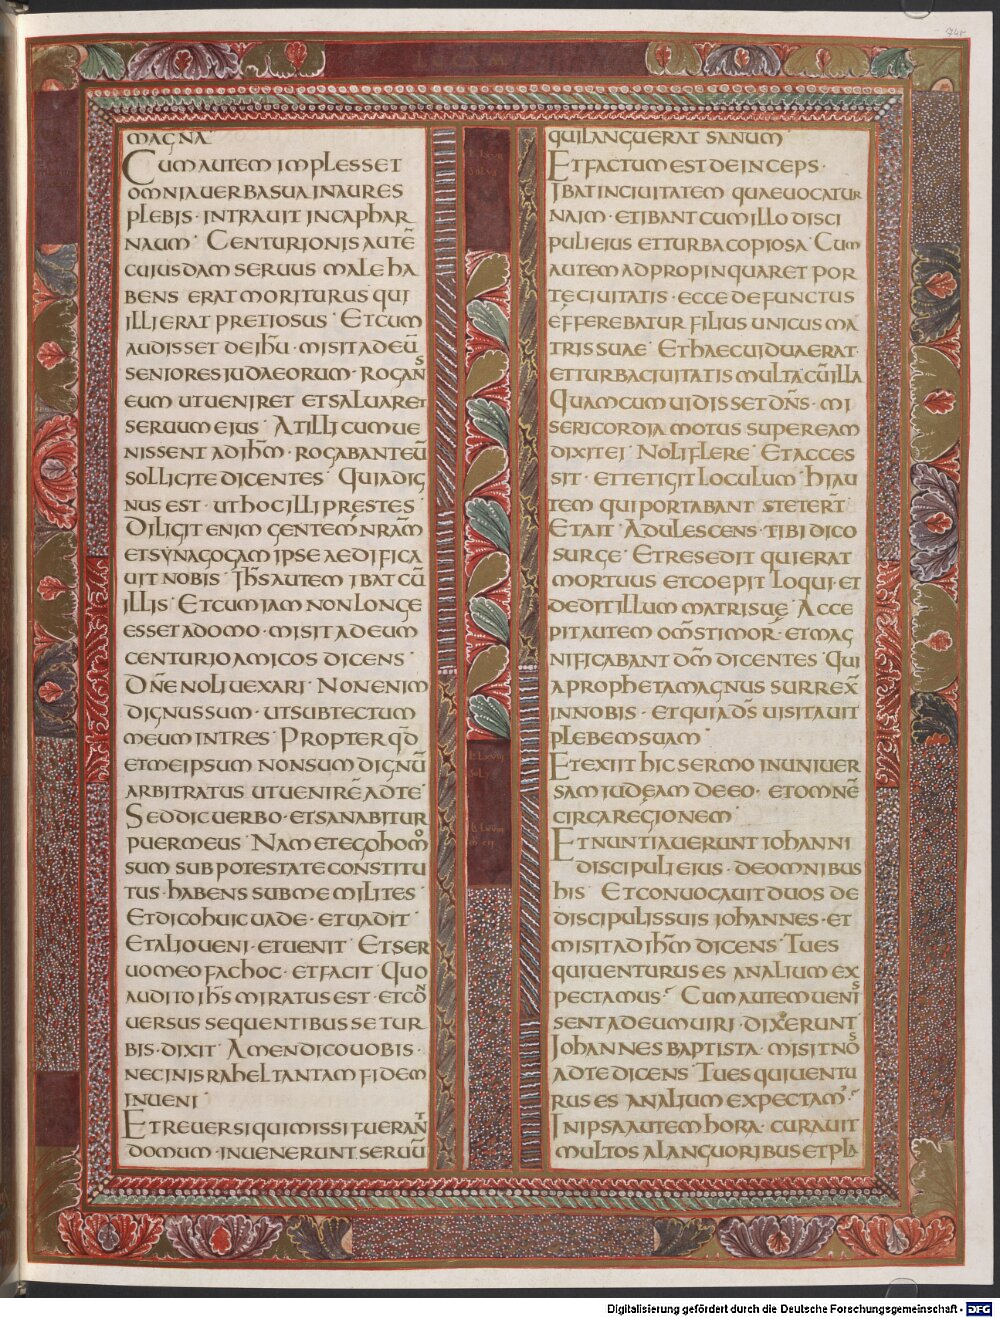 LUCAM
MAGNA·
CUM AUTEM IMPLESSET
OMNIA UERBA SUA IN AURES
PLEBIS· INTRAUIT IN CAPHAR
NAUM· CENTURIONIS AUTĒ
CUIUSDAM SERUUS MALE HA
BENS ERAT MORITURUS QUI
ILLI ERAT PRETIOSUS· ET CUM
AUDISSET DE IHŪ· MISIT AD EŪ
SENIORES IUDAEORUM· ROGAN̄S
EUM UT UENIRET ET SALUARET
SERUUM EIUS· AT ILLI CUM UE
NISSENT AD IHM̄· ROGABANT EŪ
SOLLICITE DICENTES· QUIA DIG
NUS EST· UT HOC ILLI PRESTES·
DILIGIT ENIM GENTEM NRAM̄
ET SYNAGOGAM IPSE AEDIFICA
UIT NOBIS· IHS̄ AUTEM IBAT CŪ
ILLIS· ET CUM IAM NON LONGE
ESSET A DOMO· MISIT AD EUM
CENTURIO AMICOS DICENS·
DN̄E NOLI UEXARI· NON ENIM
DIGNUS SUM· UT SUB TECTUM
MEUM INTRES· PROPTER QD̄
ET ME IPSUM NON SUM DIGNŪ
ARBITRATUS UT UENIRĒ AD TE·
SED DIC UERBO· ET SANABITUR
PUER MEUS· NAM ET EGO HOMO
SUM SUB POTESTATE CONSTITU
TUS· HABENS SUB ME MILITES·
ET DICO HUIC UADE· ET UADIT·
ET ALIO UENI· ET UENIT· ET SER
UO MEO FAC HOC· ET FACIT· QUO
AUDITO IHS̄ MIRATUS EST· ET CON
UERSUS SEQUENTIBUS SE TUR
BIS· DIXIT· AMEN DICO UOBIS·
NEC IN ISRAHEL TANTAM FIDEM
INUENI·
ET REUERSI QUI MISSI FUERANT
DOMUM· INUENERUNT SERUŪ
QUI LANGUERAT SANUM·
ET FACTUM EST DEINCEPS·
IBAT IN CIUITATEM QUAE UOCATUR
NAIM· ET IBANT CUM ILLO DISCI
PULI EIUS ET TURBA COPIOSA· CUM
AUTEM ADPROPINQUARET POR
TĘ CIUITATIS· ECCE DEFUNCTUS
EFFEREBATUR FILIUS UNICUS MA
TRIS SUAE· ET HAEC UIDUA ERAT·
ET TURBA CIUITATIS MULTA CŪ ILLA
QUAM CUM UIDISSET DN̄S· MI
SERICORDIA MOTUS SUPER EAM
DIXIT EI· NOLI FLERE· ET ACCES
SIT· ET TETIGIT LOCULUM· HI AU
TEM QUI PORTABANT STETERT̄·
ET AIT· ADULESCENS· TIBI DICO
SURGE· ET RESEDIT QUI ERAT
MORTUUS ET COEPIT LOQUI· ET
DEDIT ILLUM MATRI SUĘ· ACCE
PIT AUTEM OMS̄ TIMOR· ET MAG
NIFICABANT DM̄ DICENTES· QUI
A PROPHETA MAGNUS SURREX̄
IN NOBIS· ET QUIA DS̄ UISITAUIT
PLEBEM SUAM·
ET EXIIT HIC SERMO IN UNIUER
SAM IUDĘAM DE EO· ET OMNĒ
CIRCA REGIONEM·
ET NUNTIAUERUNT IOHANNI
DISCIPULI EIUS· DE OMNIBUS
HIS· ET CONUOCAUIT DUOS DE
DISCIPULIS SUIS IOHANNES· ET
MISIT AD IHM̄ DICENS· TU ES
QUI UENTURUS ES AN ALIUM EX
PECTAMUS· CUM AUTEM UENIS
SENT AD EUM UIRI· DIXERUNT·
IOHANNES BAPTISTA· MISIT NOS
AD TE DICENS· TU ES QUI UENTU
RUS ES AN ALIUM EXPECTAM'·
IN IPSA AUTEM HORA· CURAUIT
MULTOS A LANGUORIBUS ET PLA
Digitalisierung gefördert durch die Deutsche Forschungsgemeinschaft - DFG